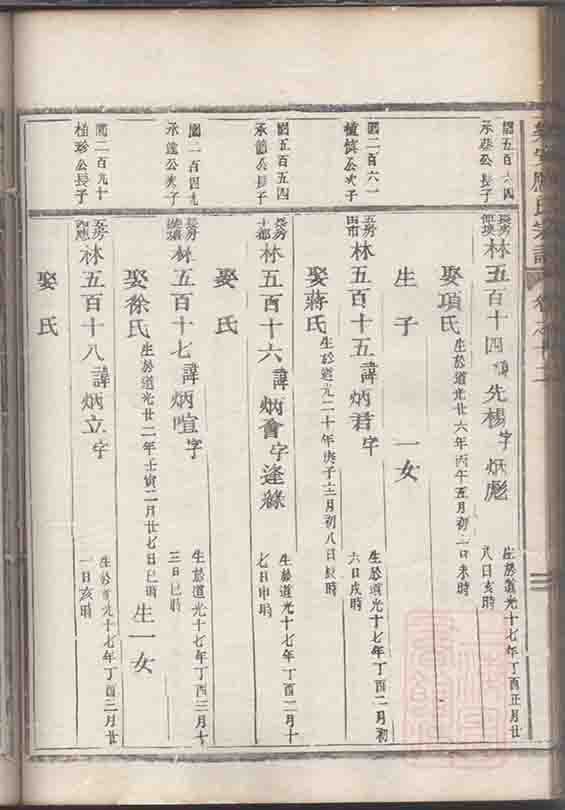 應氏宗譜
國五百六四
承彝公長子
長房
林五百十四 諱先楊字炳彪
生於道光十七年丁酉正月廿
八日亥時
娶項氏 生於道光廿六年丙午五月初二日未時
生子 一女
國二百六一
公次子
五房
林五百十五 諱炳君字
生於道光十七年丁酉二月初
六日戌時
娶蔣氏 生於道光二十年庚子十二月初八日辰時
國五百五四
承德公長子
長房
十都
林五百十六 諱炳會字逢綠
生於道光十七年丁酉二月十
七日申時
娶 氏
國二百四九
承遠公次子
長房
林五百十七 諱炳喧字
生於道光十七年丁酉三月十
三日巳時
娶徐氏 生於道光廿二年壬寅二月廿七日巳時 生一女
國二百九十
植珍公長子
五房
林五百十八 諱炳立字
生於道光十七年丁酉三月廿
一日亥時
娶 氏